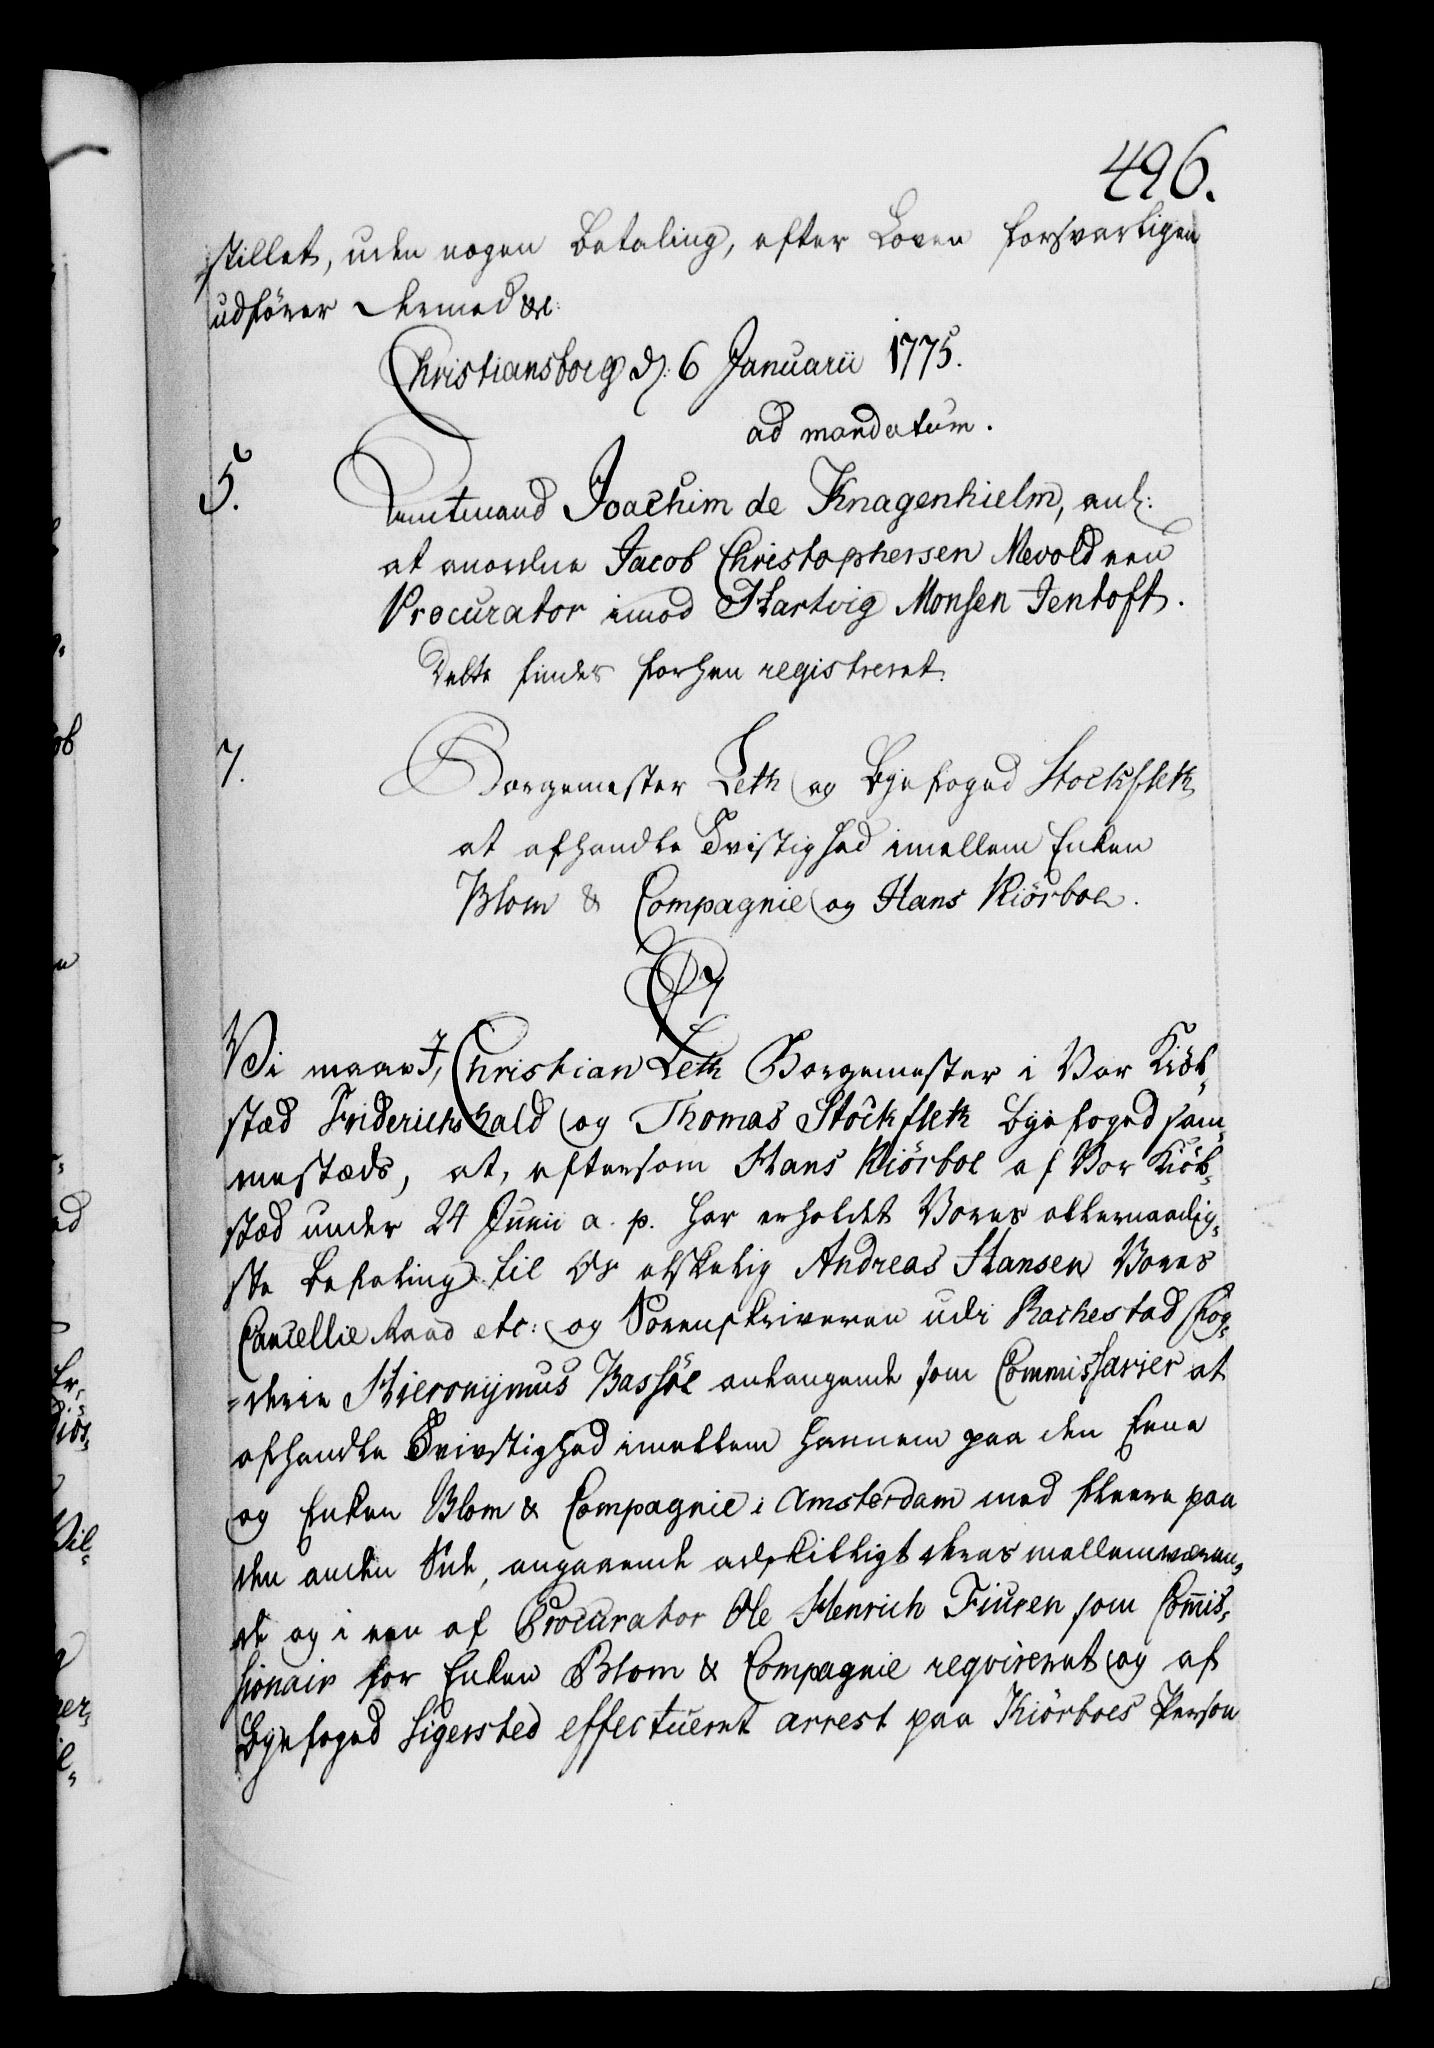 496.
stillet, uden nogen Betaling, efter Loven forsvarligen
udfører dermed &c:
Christiansborg d: 6 Januarii 1775.
ad mandatum.
5.
Amtmand Joachim de Knagenhielm, anl:
at anordne Jacob Christophersen Mevold een
Procurator imod Hartvig Monsen Jentoft.
Dette findes forhen registreret.
7.
Borgemester Leth og Byefoged Stockfleth
at afhandle Tvistighed imellem Enken
Blom & Compagnie og Hans Kiörboe.
C7
Vi maae I, Christian Leth Borgemester i Vor Kiöb-
stæd Friderichshald og Thomas Stockfleth Byefoged sam-
mestæds, at, eftersom Hans Kiörboe af Vor Kiöb-
stæd under 24 Junii a. p. har erholdet Vores allernaadig-
ste Befaling til Os elskelig Andreas Hansen Vores
Cancellie Raad etc: og Sorenskriveren udi Rachestad Fog-
=derie Hieronymus Bassöe anlangende som Commissarier at
afhandle Tvivstighed imellem hannem paa den Eene
og Enken Blom & Compagnie i Amsterdam med fleere paa
den anden Side, angaaende adskilligt deres mellemværen-
de og i een af Procurator Ole Henrich Fiuren som Com̅is-
sionair for Enken Blom & Compagnie reqvireret og af
Byefoged Sigersted effectueret arrest paa Kiörboes Person